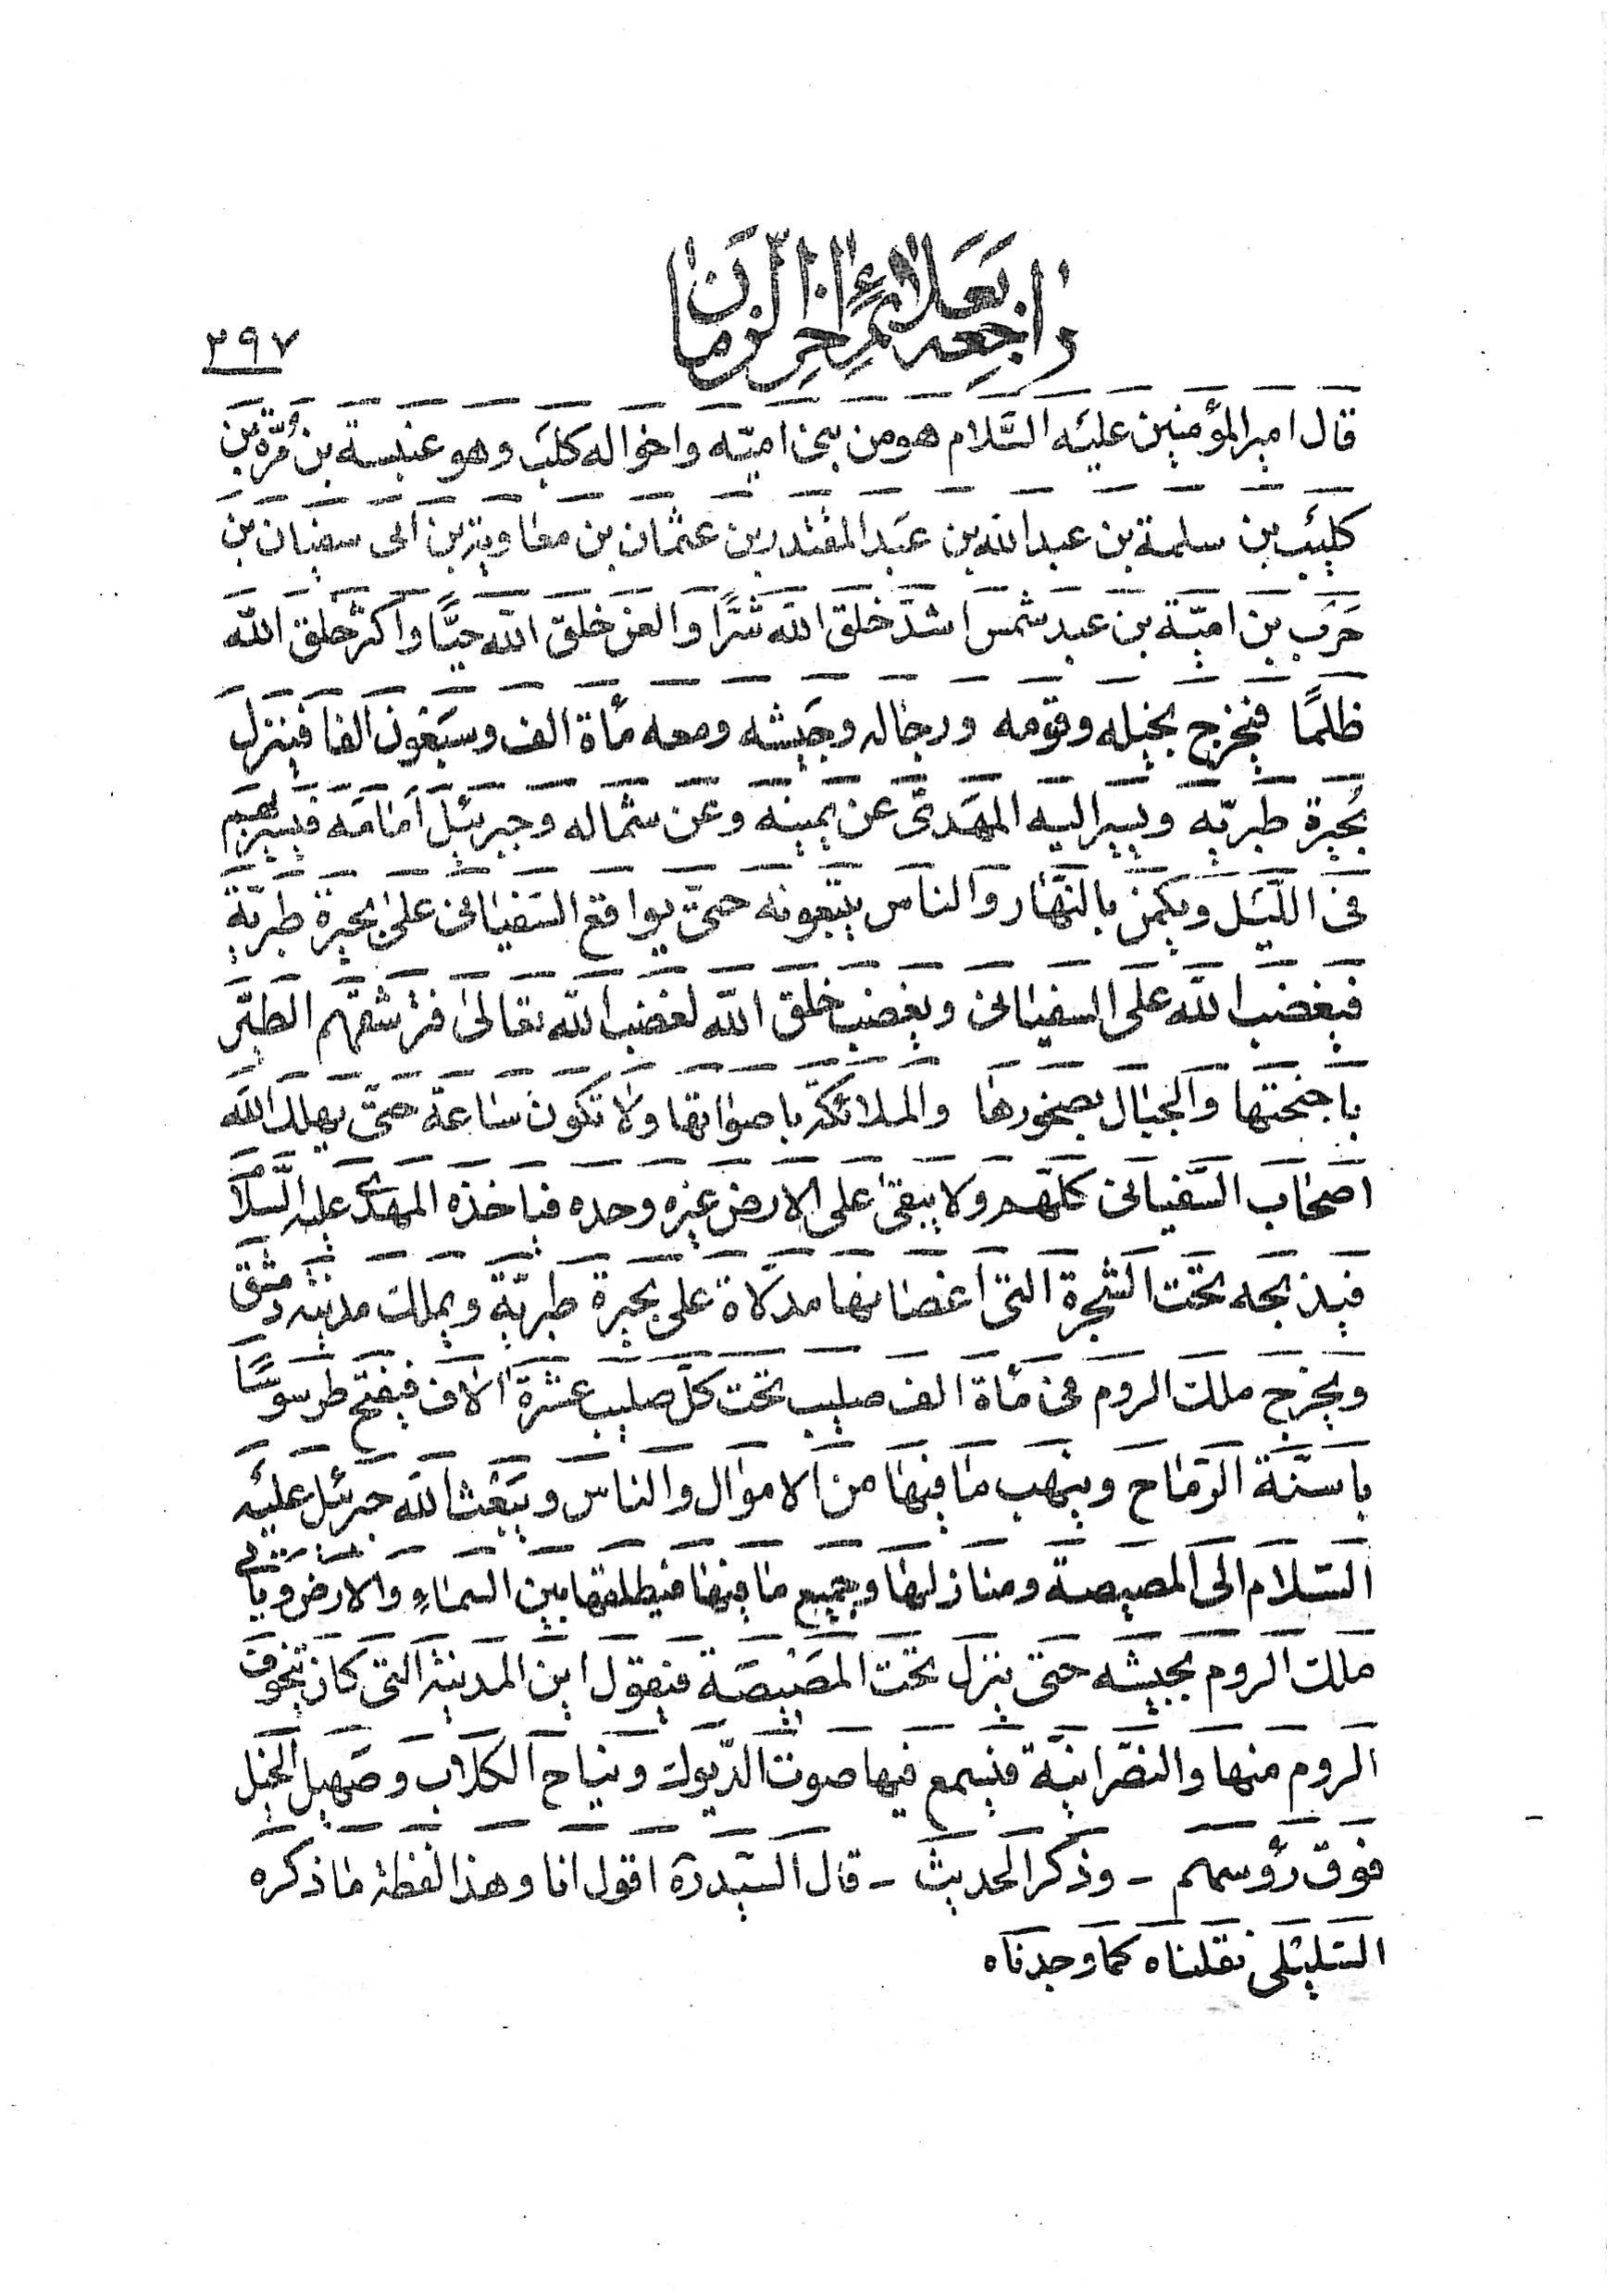 راجعه بعلائم آخر الزمان
٢٩٧
قال امير المؤمنين عليه السّلام هو من بنى اميّه واخواله كلب وهو عنبسة بن مُرّة بن
كليب بن سلمة بن عبدالله بن عبد المقتدر بن عثمان بن معاوية بن ابى سفيان بن
حرب بن اميّة بن عبد شمس اشدّ خلق الله شرًّا والعن خلق الله حيًّا واكثر خلق الله
ظلمًا فيخرج بخيله وقومه ورجاله وجيشه ومعه مأة الف وسبعون الفا فينزل
بُحيرة طبريّه ويسير اليه المهدىّ عن يمينه وعن شماله وجبرئيل امامه فيسير بهم
فى اللّيل ويكمن بالنّهار والناس يتّبعونه حتىّ يواقع السّفيانى على بحيرة طبريّة
فيغضب الله على السفيانى ويغضب خلق الله لغضب الله تعالى فترشقهم الطيّر
باجنحتها والجبال بصخورها والملائكة باصواتها ولا تكون ساعة حتىّ يهلك الله
اصحاب السّفيانى كلّهم ولا يبقى على الارض غيره وحده فياخذه المهدىّ عليه السّلام
فيذبحه تحت الشجرة التى اغصانها مدلّاة على بحيرة طبريّة ويملك مدينة دمشق
ويخرج ملك الروم فى مأة الف صليب تحت كلّ صليب عشرة الاف فيفتح طرسوسًا
باسنّة الرّماح وينهب ما فيها من الاموال والناس ويبعث الله جبرئيل عليه
السّلام الى المصيصة ومنازلها وجميع ما فيها فيطلقها بين السماء والارض ويأتى
ملك الروم بجيشه حتى ينزل تحت المصيصة فيقول اين المدينة التى كان يتخوف
الروم منها والنصرانيّة فيسمع فيها صوت الدّيوك ونياح الكلاب وصهيل الخيل
فوق رؤسهم - وذكر الحديث - قال السّيدرة اقول انا وهذا لفظة ما ذكره
السّليلى نقلناه كما وجدناه